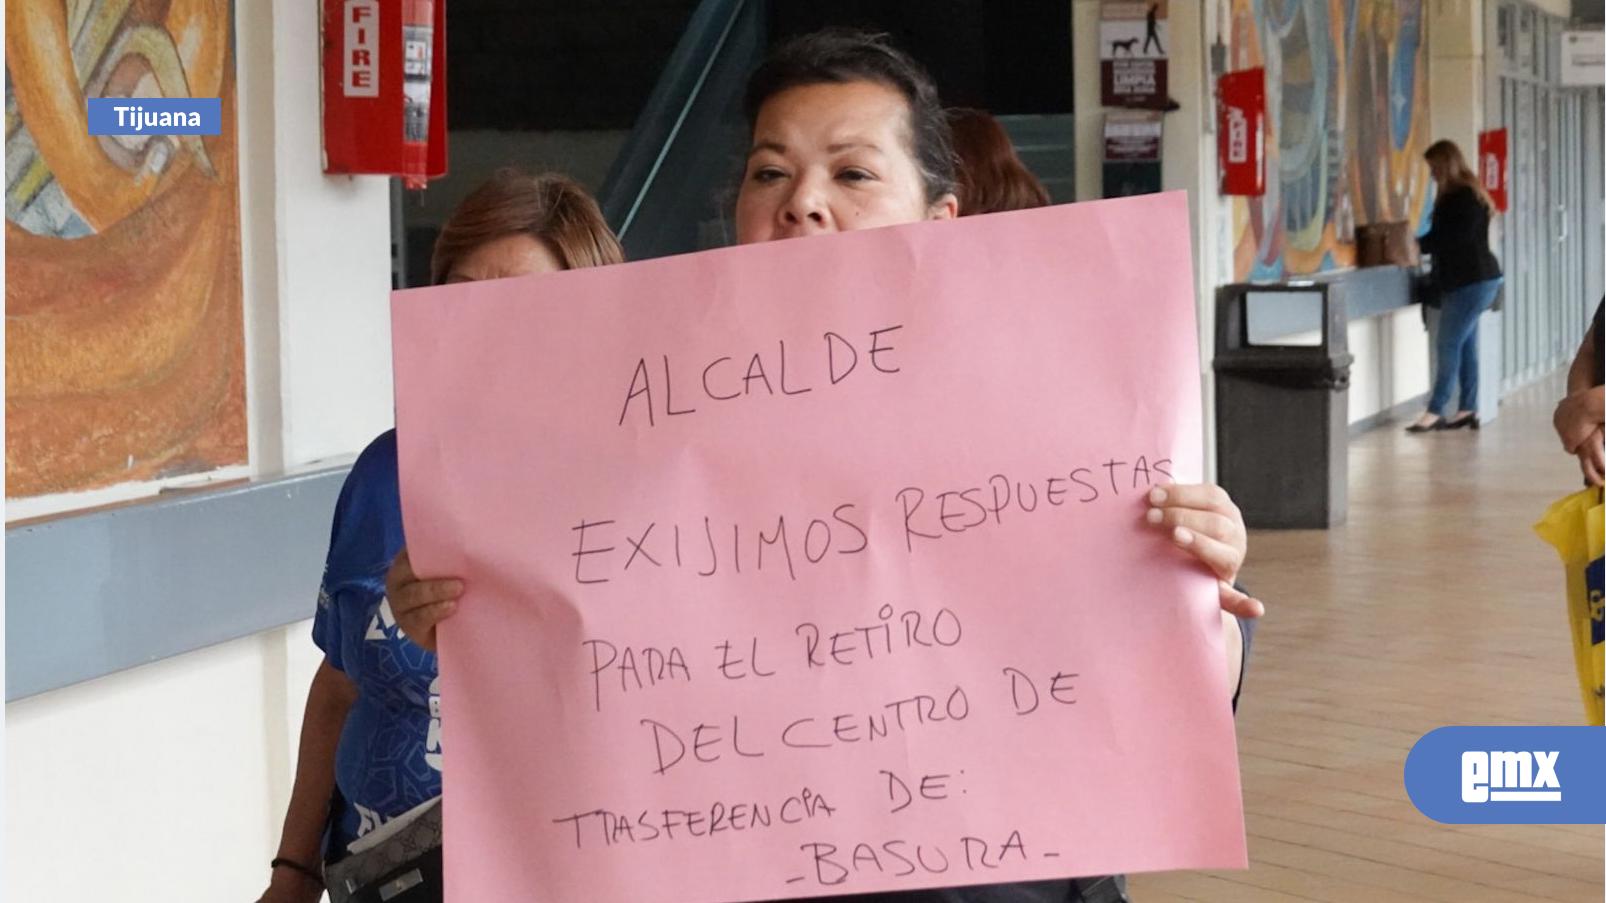 Tijuana
FIRE
LIMPIA
ALCALDE
EXIJIMOS RESPUESTAS
PARA EL RETIRO
DEL CENTRO DE
TRASFERENCIA DE:
-BASURA-
emx